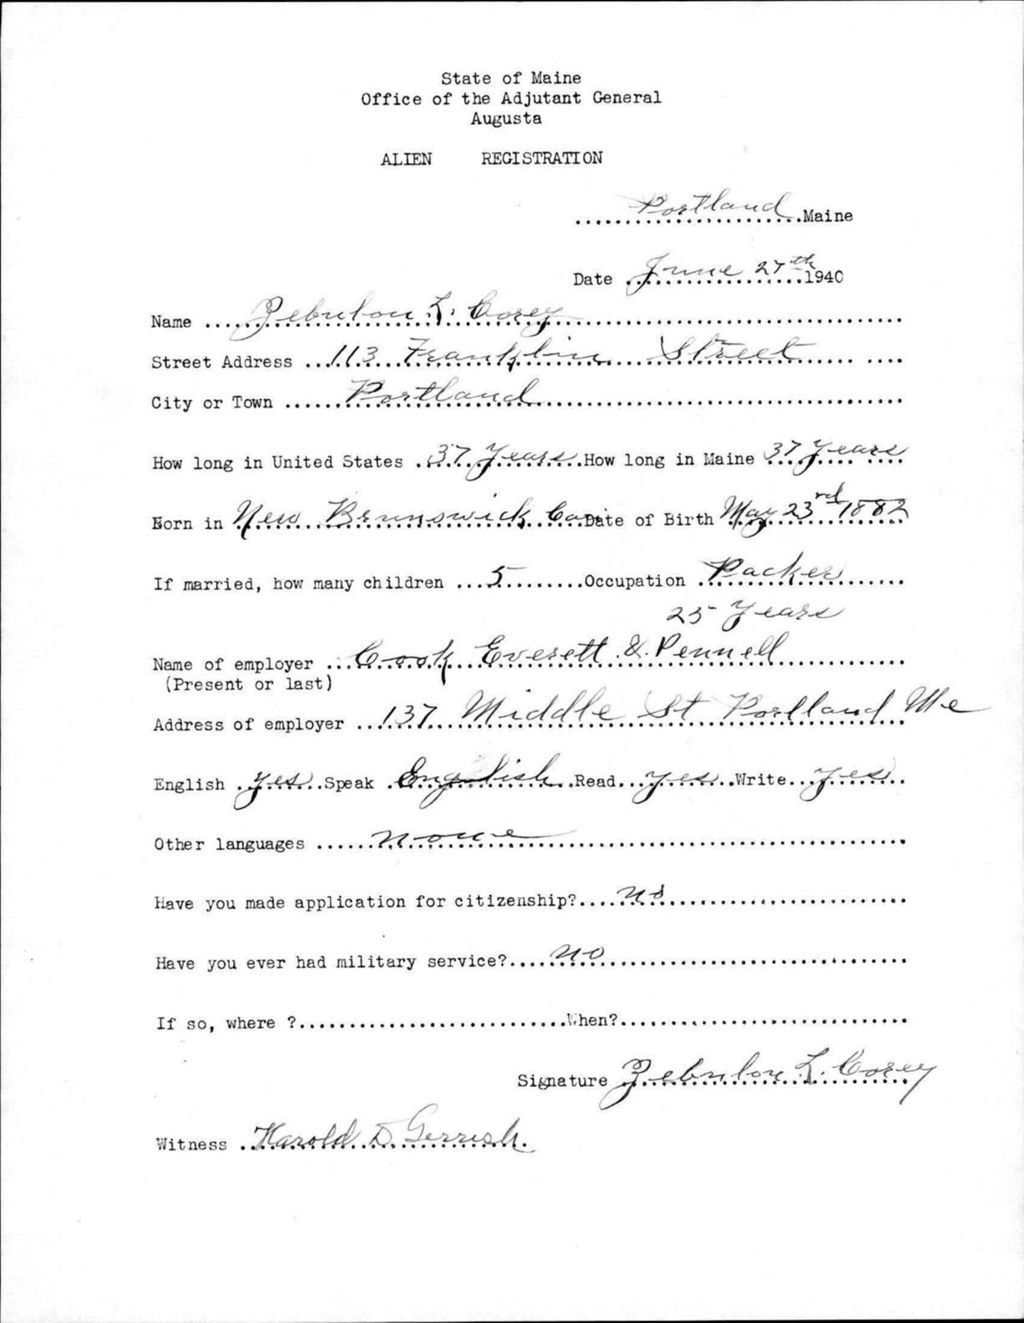 State of Maine
Office of the Adjutant General
Augusta
ALIEN REGISTRATION
Portland Maine
Date June 27th 1940
Name Zebulon L. Corey
Street Address 113 Franklin Street
City or Town Portland
How long in United States 37 Years How long in Maine 37 Years
Born in New Brunswick Can Date of Birth May 23rd 1882
If married, how many children 5 Occupation Packer
25 Years
Name of employer Cook Everett & Pennell
(Present or last)
Address of employer 137 Middle St Portland Me
English yes Speak English Read yes Write yes
Other languages none
Have you made application for citizenship? no
Have you ever had military service? no
If so, where ? When?
Signature Zebulon L. Corey
Witness Harold D Gerrish